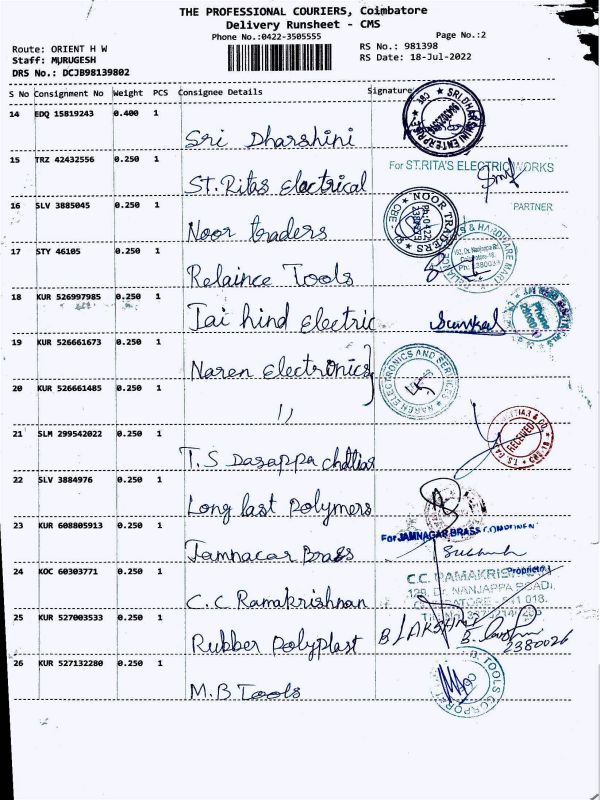 THE PROFESSIONAL COURIERS, Coimbatore
Delivery Runsheet - CMS
Phone No.:0422-3505555
Page No.:2
Route: ORIENT H W
RS No.: 981398
Staff: MURUGESH
RS Date: 18-Jul-2022
DRS No.: DCJB98139802
S No Consignment No Weight PCS Consignee Details Signature
14 EDQ 15819243 0.400 1
Sri Dharshini
15 TRZ 42432556 0.250 1
For ST.RITA'S ELECTRIC WORKS
ST.Ritas Electrical
PARTNER
16 SLV 3885045 0.250 1
NOOR TRADERS
Noor traders
17 STY 46105 0.250 1
Relaince Tools
18 KUR 526997985 0.250 1
Jai hind Electric
19 KUR 526661673 0.250 1
NAREN ELECTRONICS AND SERVICES
Naren Electronics
20 KUR 526661485 0.250 1
11
21 SLM 299542022 0.250 1
RECEIVED
T.S Dasappa chettiar
22 SLV 3884976 0.250 1
Long last Polymers
23 KUR 608805913 0.250 1
For JAMNAGAR BRASS COMPONEN
Jamnacar Brass
24 KOC 60303771 0.250 1
Proprietor
C.C. RAMAKRIS
NANJAPPA ROAD,
C.C Ramakrishnan
25 KUR 527003533 0.250 1
B LAKSHMI
2380026
Rubber Polyplast
26 KUR 527132280 0.250 1
M.B Tools